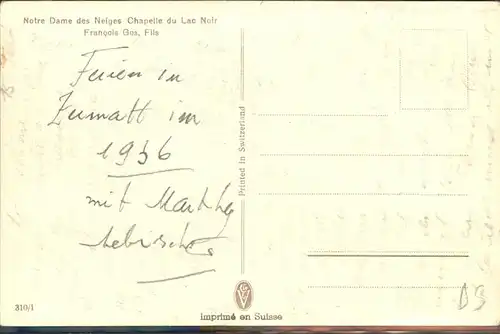 Notre Dame des Neiges Chapelle du Lac Noir
François Gos, Fils
Ferien in
Zermatt im
1936
mit
Printed in Switzerland
310/1
Imprimé en Suisse